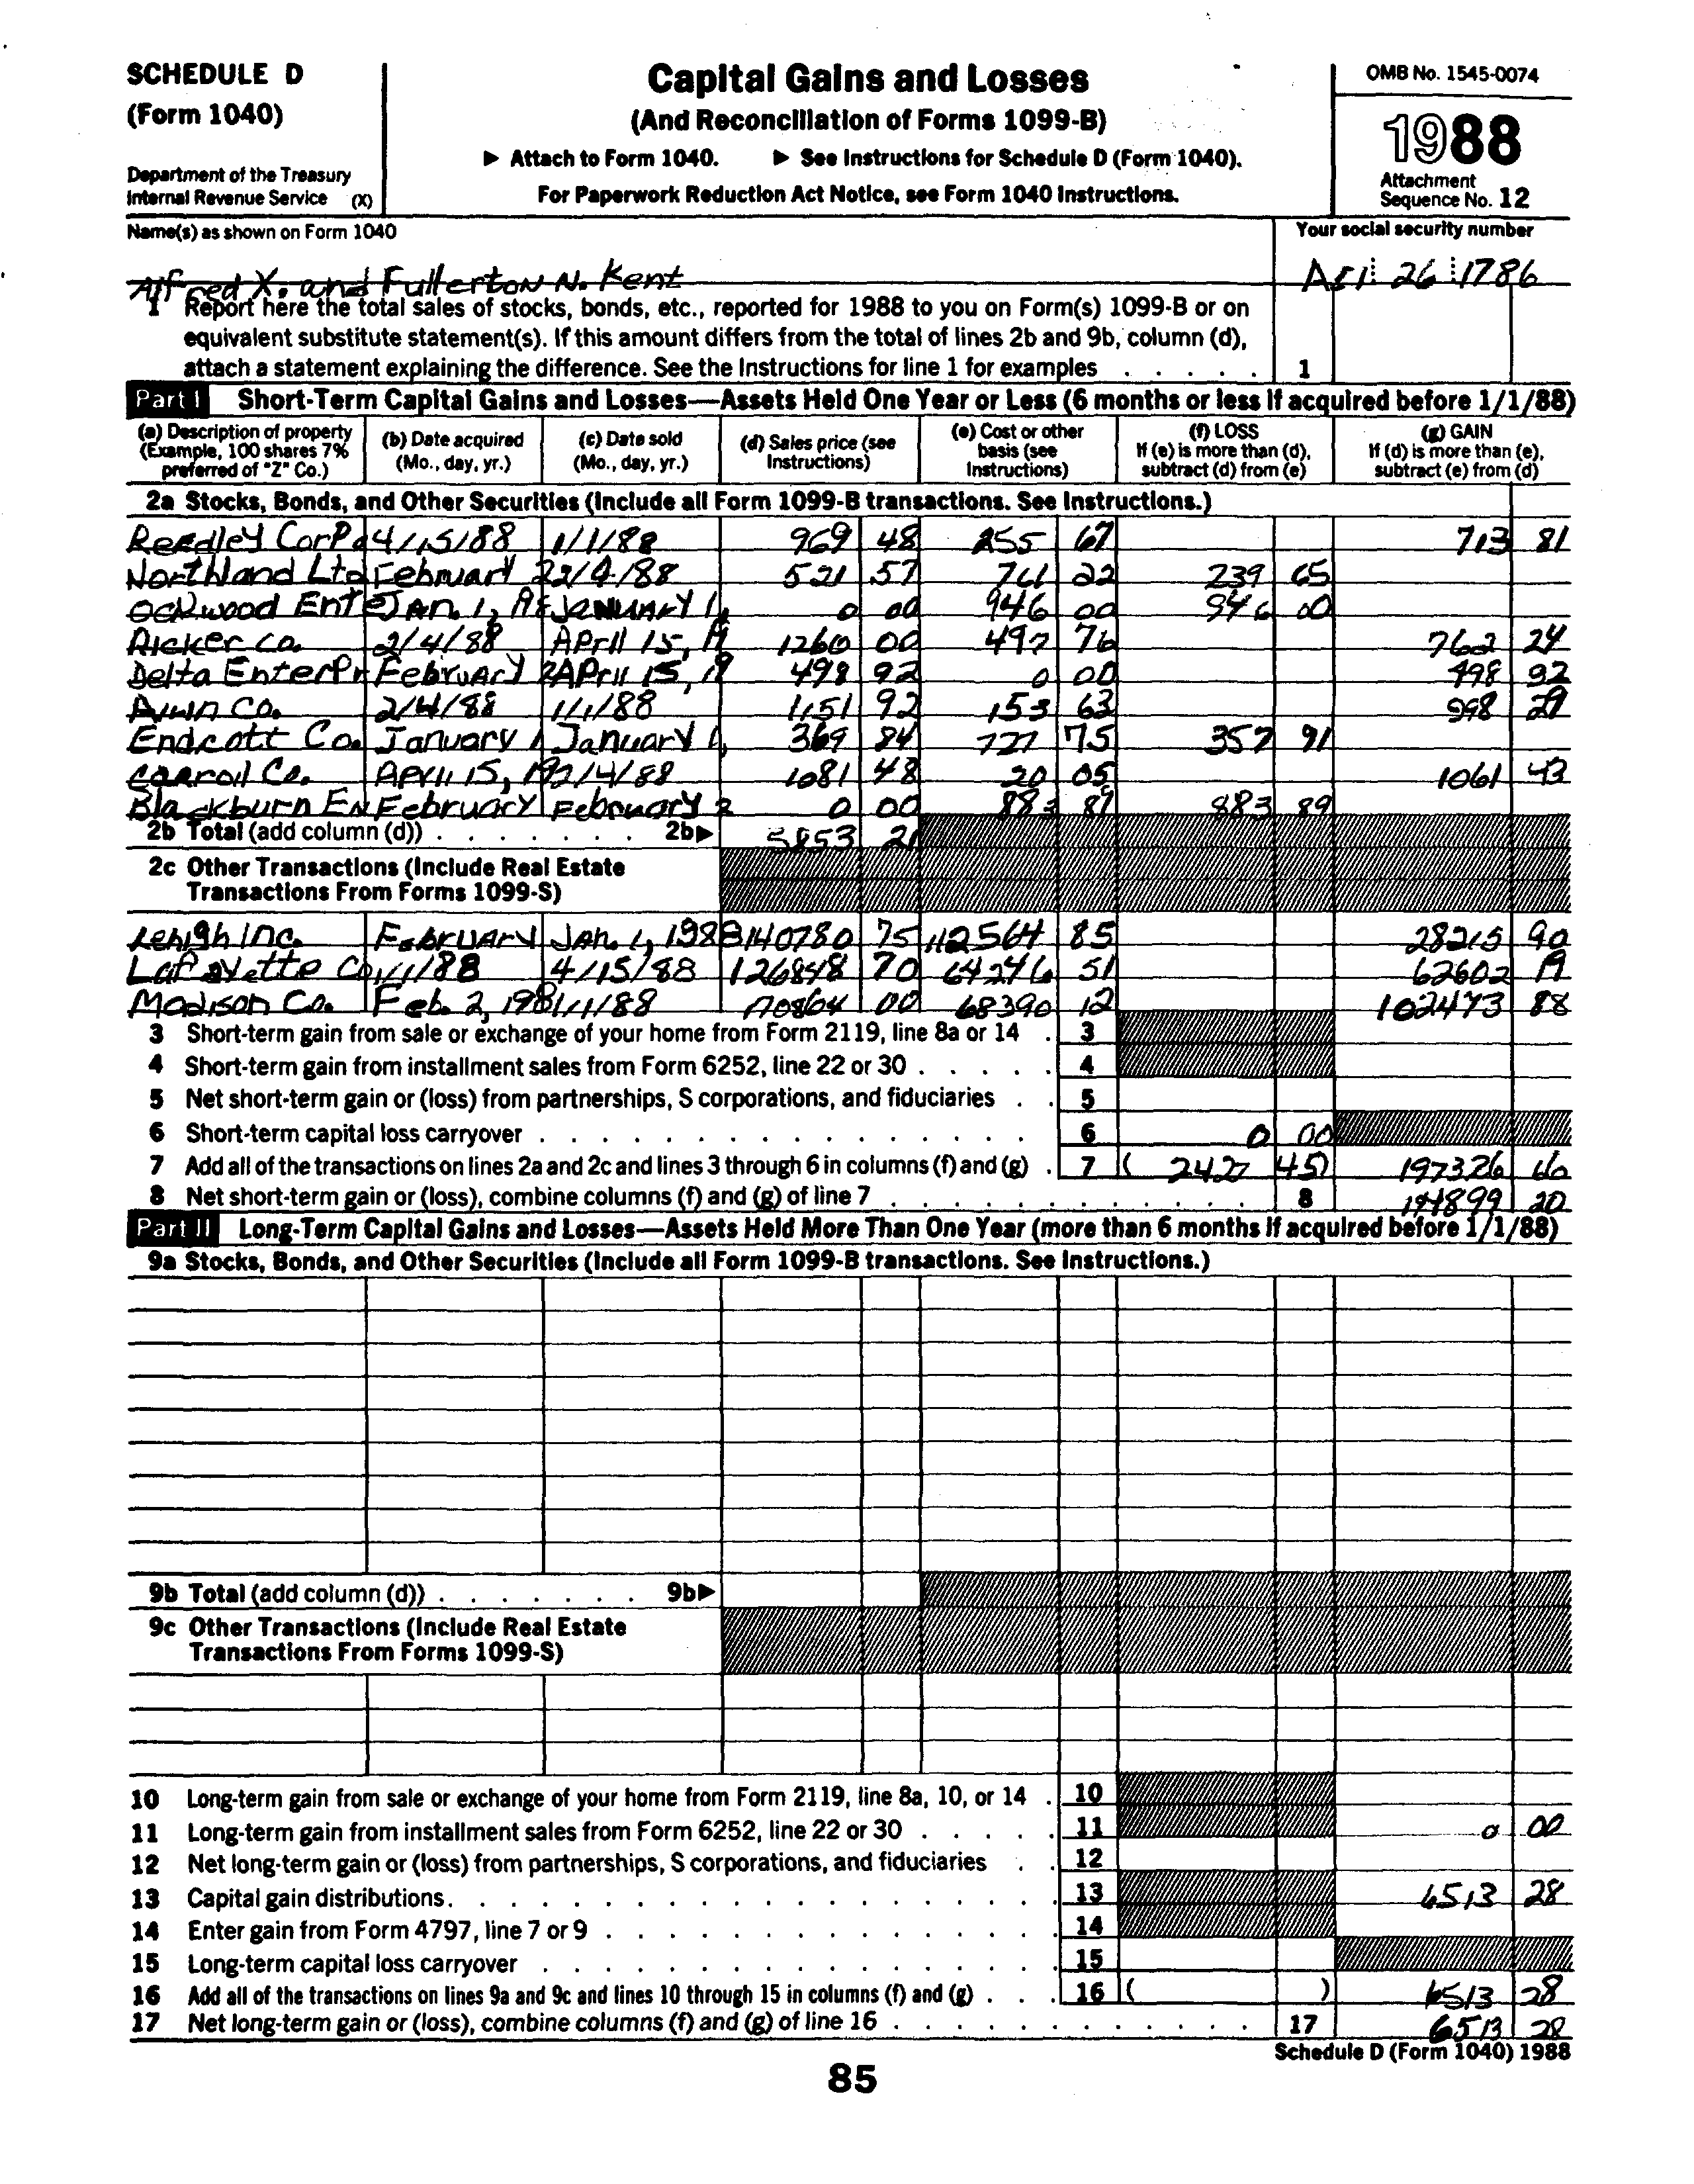 SCHEDULE D
(Form 1040)
Department of the Treasury
Internal Revenue Service (X)
Capital Gains and Losses
(And Reconciliation of Forms 1099-B)
▶ Attach to Form 1040. ▶ See Instructions for Schedule D (Form 1040).
For Paperwork Reduction Act Notice, see Form 1040 Instructions.
OMB No. 1545-0074
1988
Attachment
Sequence No. 12
Name(s) as shown on Form 1040
Your social security number
Alfred X. and Fullerton N. Kent
26 1786
1 Report here the total sales of stocks, bonds, etc., reported for 1988 to you on Form(s) 1099-B or on
equivalent substitute statement(s). If this amount differs from the total of lines 2b and 9b, column (d),
attach a statement explaining the difference. See the Instructions for line 1 for examples . . . . . 1
Part I Short-Term Capital Gains and Losses—Assets Held One Year or Less (6 months or less if acquired before 1/1/88)
(a) Description of property (Example, 100 shares 7% preferred of "Z" Co.)
(b) Date acquired (Mo., day, yr.)
(c) Date sold (Mo., day, yr.)
(d) Sales price (see Instructions)
(e) Cost or other basis (see Instructions)
(f) LOSS If (e) is more than (d), subtract (d) from (e)
(g) GAIN If (d) is more than (e), subtract (e) from (d)
2a Stocks, Bonds, and Other Securities (Include all Form 1099-B transactions. See Instructions.)
Reedley Corp 4/15/88 1/1/88 969 48 255 67 713 81
Northland Ltd February 2 2/4/88 521 57 761 22 239 65
Ent Jan. 1, January 1, 0 00 946 00 946 00
Ricker Co. 2/4/88 April 15, 19 1260 00 497 76 762 24
Delta Enterpr February 2 April 15, 19 498 92 0 00 498 92
Co. 2/4/88 1/1/88 1151 92 153 63 998 29
Endicott Co. January 1 January 1, 369 84 727 75 357 91
Carroll Co. April 15, 19 2/4/88 1081 48 20 05 1061 43
Blackburn En February February 2 0 00 883 89 883 89
2b Total (add column (d)) . . . . . . . 2b▶ 5853 21
2c Other Transactions (Include Real Estate
Transactions From Forms 1099-S)
Lehigh Inc. February Jan. 1, 1988 140780 75 112564 85 28215 90
Lafayette Co 1/1/88 4/15/88 126848 70 64246 51 62602 19
Madison Co. Feb. 2, 198 1/1/88 170864 00 68390 12 102473 88
3 Short-term gain from sale or exchange of your home from Form 2119, line 8a or 14 . 3
4 Short-term gain from installment sales from Form 6252, line 22 or 30 . . . . . . 4
5 Net short-term gain or (loss) from partnerships, S corporations, and fiduciaries . . 5
6 Short-term capital loss carryover . . . . . . . . . . . . . . . . 6 0 00
7 Add all of the transactions on lines 2a and 2c and lines 3 through 6 in columns (f) and (g) . 7 ( 2427 45) 197326 66
8 Net short-term gain or (loss), combine columns (f) and (g) of line 7 . . . . . . . . . . . . . . 8 194899 20
Part II Long-Term Capital Gains and Losses—Assets Held More Than One Year (more than 6 months if acquired before 1/1/88)
9a Stocks, Bonds, and Other Securities (Include all Form 1099-B transactions. See Instructions.)
9b Total (add column (d)) . . . . . . . 9b▶
9c Other Transactions (Include Real Estate
Transactions From Forms 1099-S)
10 Long-term gain from sale or exchange of your home from Form 2119, line 8a, 10, or 14 . 10
11 Long-term gain from installment sales from Form 6252, line 22 or 30 . . . . . . 11 0 00
12 Net long-term gain or (loss) from partnerships, S corporations, and fiduciaries . . 12
13 Capital gain distributions . . . . . . . . . . . . . . . . . . . 13 6513 28
14 Enter gain from Form 4797, line 7 or 9 . . . . . . . . . . . . . . 14
15 Long-term capital loss carryover . . . . . . . . . . . . . . . . 15
16 Add all of the transactions on lines 9a and 9c and lines 10 through 15 in columns (f) and (g) . . . 16 ( ) 6513 28
17 Net long-term gain or (loss), combine columns (f) and (g) of line 16 . . . . . . . . . . . . . 17 6513 28
Schedule D (Form 1040) 1988
85